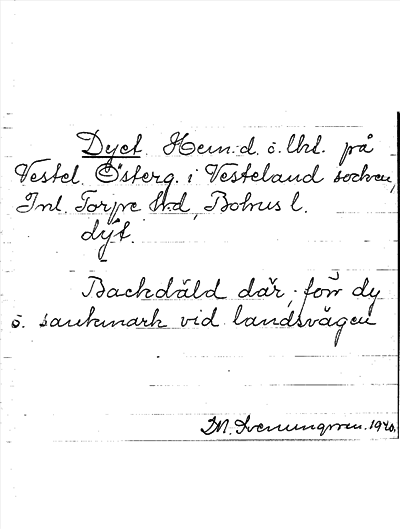 Dyet. Hem.d. o. lht. på
Vestel. Österg. i Vesteland socken,
Inl. Torpe H:d, Bohus l.
dýt.
Backdäld där, förr dy
o. sankmark vid landsvägen
M. Svenungsson. 1940.